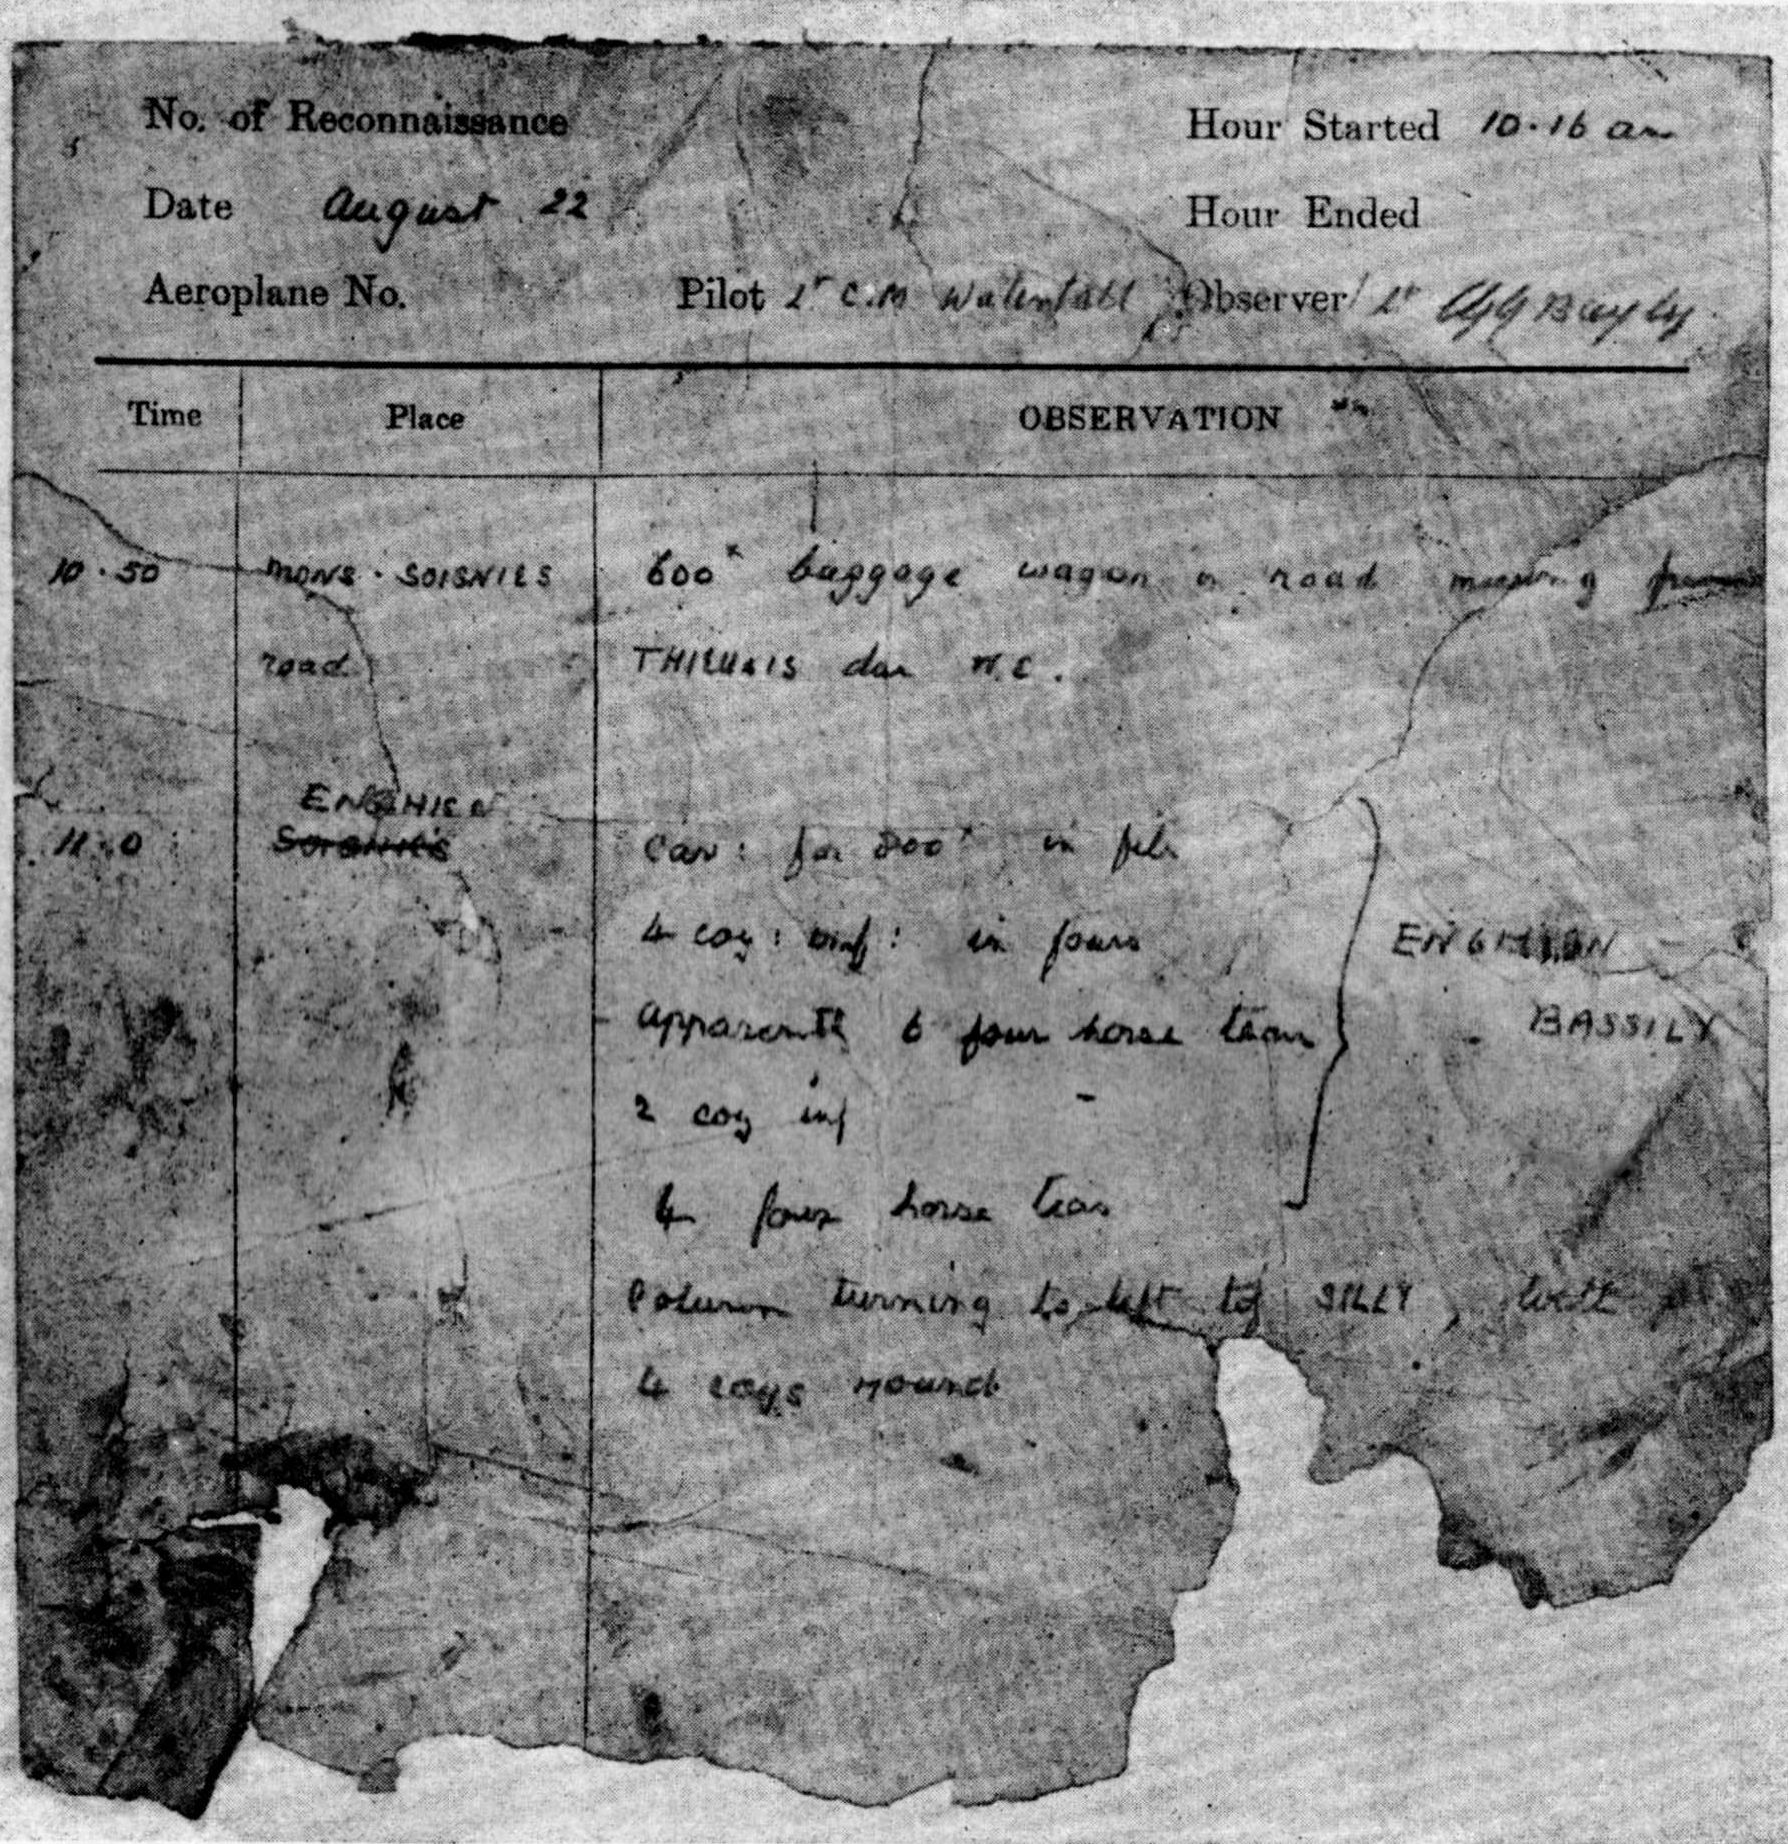 No. of Reconnaissance Hour Started 10.16 am
Date August 22 Hour Ended
Aeroplane No. Pilot Lt C.M Waterfall Observer Lt CGG Bayly
Time Place OBSERVATION
10.50 MONS - SOIGNIES 600x baggage wagon on road moving from
road THIEUSIS due N.E.
ENGHIEN
11.0 Soignies Cav: for 200x in file
4 coy: inf: in fours ENGHIEN -
Apparently 6 four horse team BASSILY
2 coy inf
4 four horse team
Column turning to left to SILLY, with
4 coys round